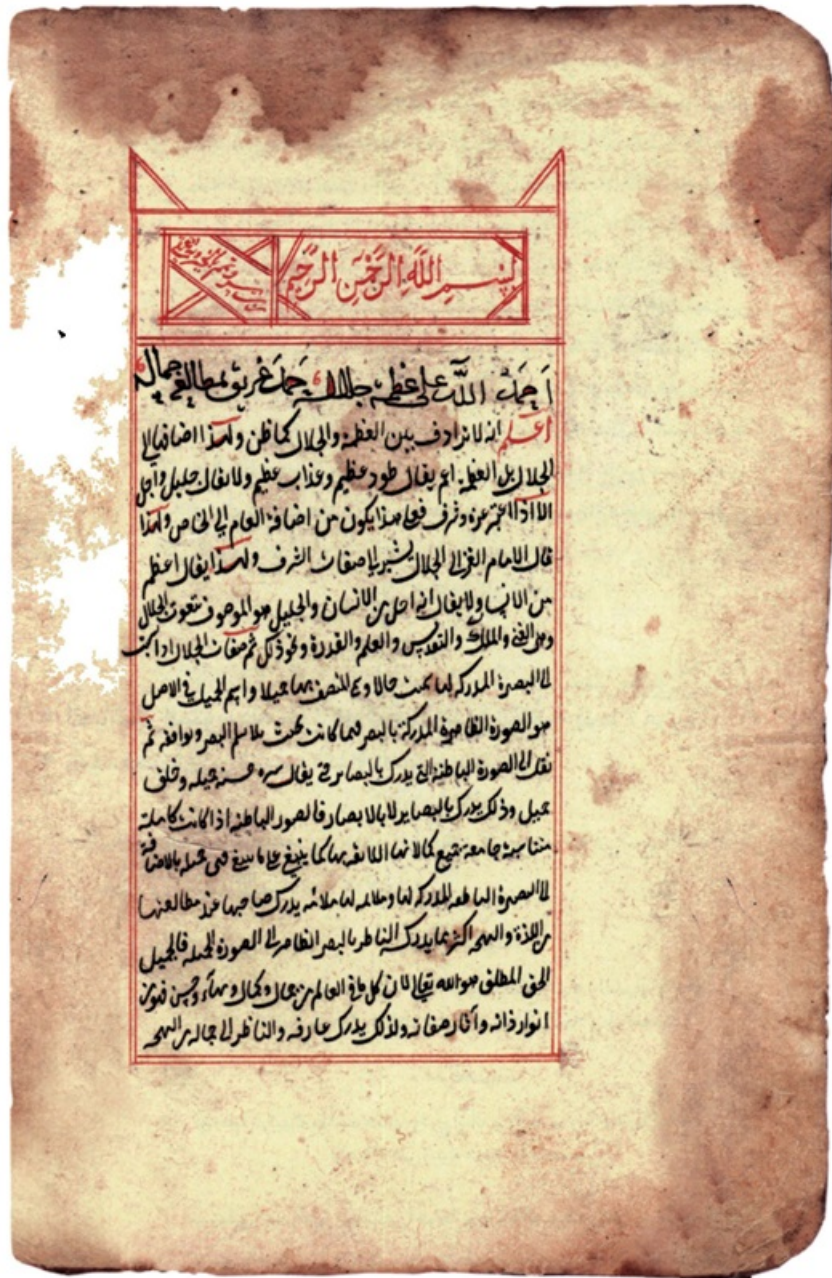 بسم الله الرحمن الرحيم
احمد الله على عظمة جلاله حمد غريق بمطالعة جماله
اعلم انه لا ترادف بين العظمة والجلال كما ظن ولهذا اضافها الى
الجلال بل العظمة اعم يقال طود عظيم وعذاب عظيم ولا يقال جليل واجل
الا اذا اعتبر عزة وشرف فعلى هذا يكون من اضافة العام الى الخاص ولهذا
قال الامام الغزالى الجلال يشير الى صفات الشرف ولهذا يقال اعظم
من الانسان ولا يقال انه اجل من الانسان والجليل هو الموصوف بنعوت الجلال
وهى الغنى والملك والتقدس والعلم والقدرة ونحو ذلك ثم صفات الجلال اذا نسبت
الى البصيرة المدركة لها سميت جمالا وسمى المتصف بها جميلا واسم الجميل فى الاصل
هو الصورة الظاهرة المدركة بالبصر مهما كانت بحيث يلايم البصر ويوافقه ثم
نقل الى الصورة الباطنة التى يدرك بالبصاير حتى يقال سيرة حسنة جميلة وخلق
جميل وذلك يدرك بالبصاير لا بالابصار فالصور الباطنة اذا كانت كاملة
متناسبة جامعة جميع كمالاتها اللائقة بها كما ينبغى على ما ينبغى فهى جميلة بالاضافة
الى البصيرة الباطنة المدركة لها وملايمة لها ملائمة يدرك صاحبها عند مطالعتها
من اللذة والبهجة اكثر مما يدركه الناظر بالبصر الظاهر الى الصورة الجميلة فالجميل
الحق المطلق هو الله تعالى لان كل ما فى العالم من جمال وكمال وبهاء وحسن فهو من
انوار ذاته وآثار صفاته ولذلك يدرك عارفه والناظر الى جماله من البهجة